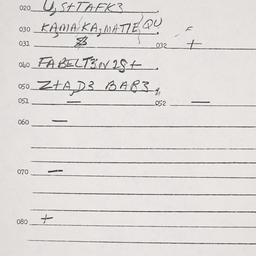 020 U,S+TAFK3
030 KAMA/KA,MATTE(QU
031 8 032 +
040 FABELT3N2S+
050 Z+A,D3 BAB3,
051 — 052 —
060 —
070 —
080 +